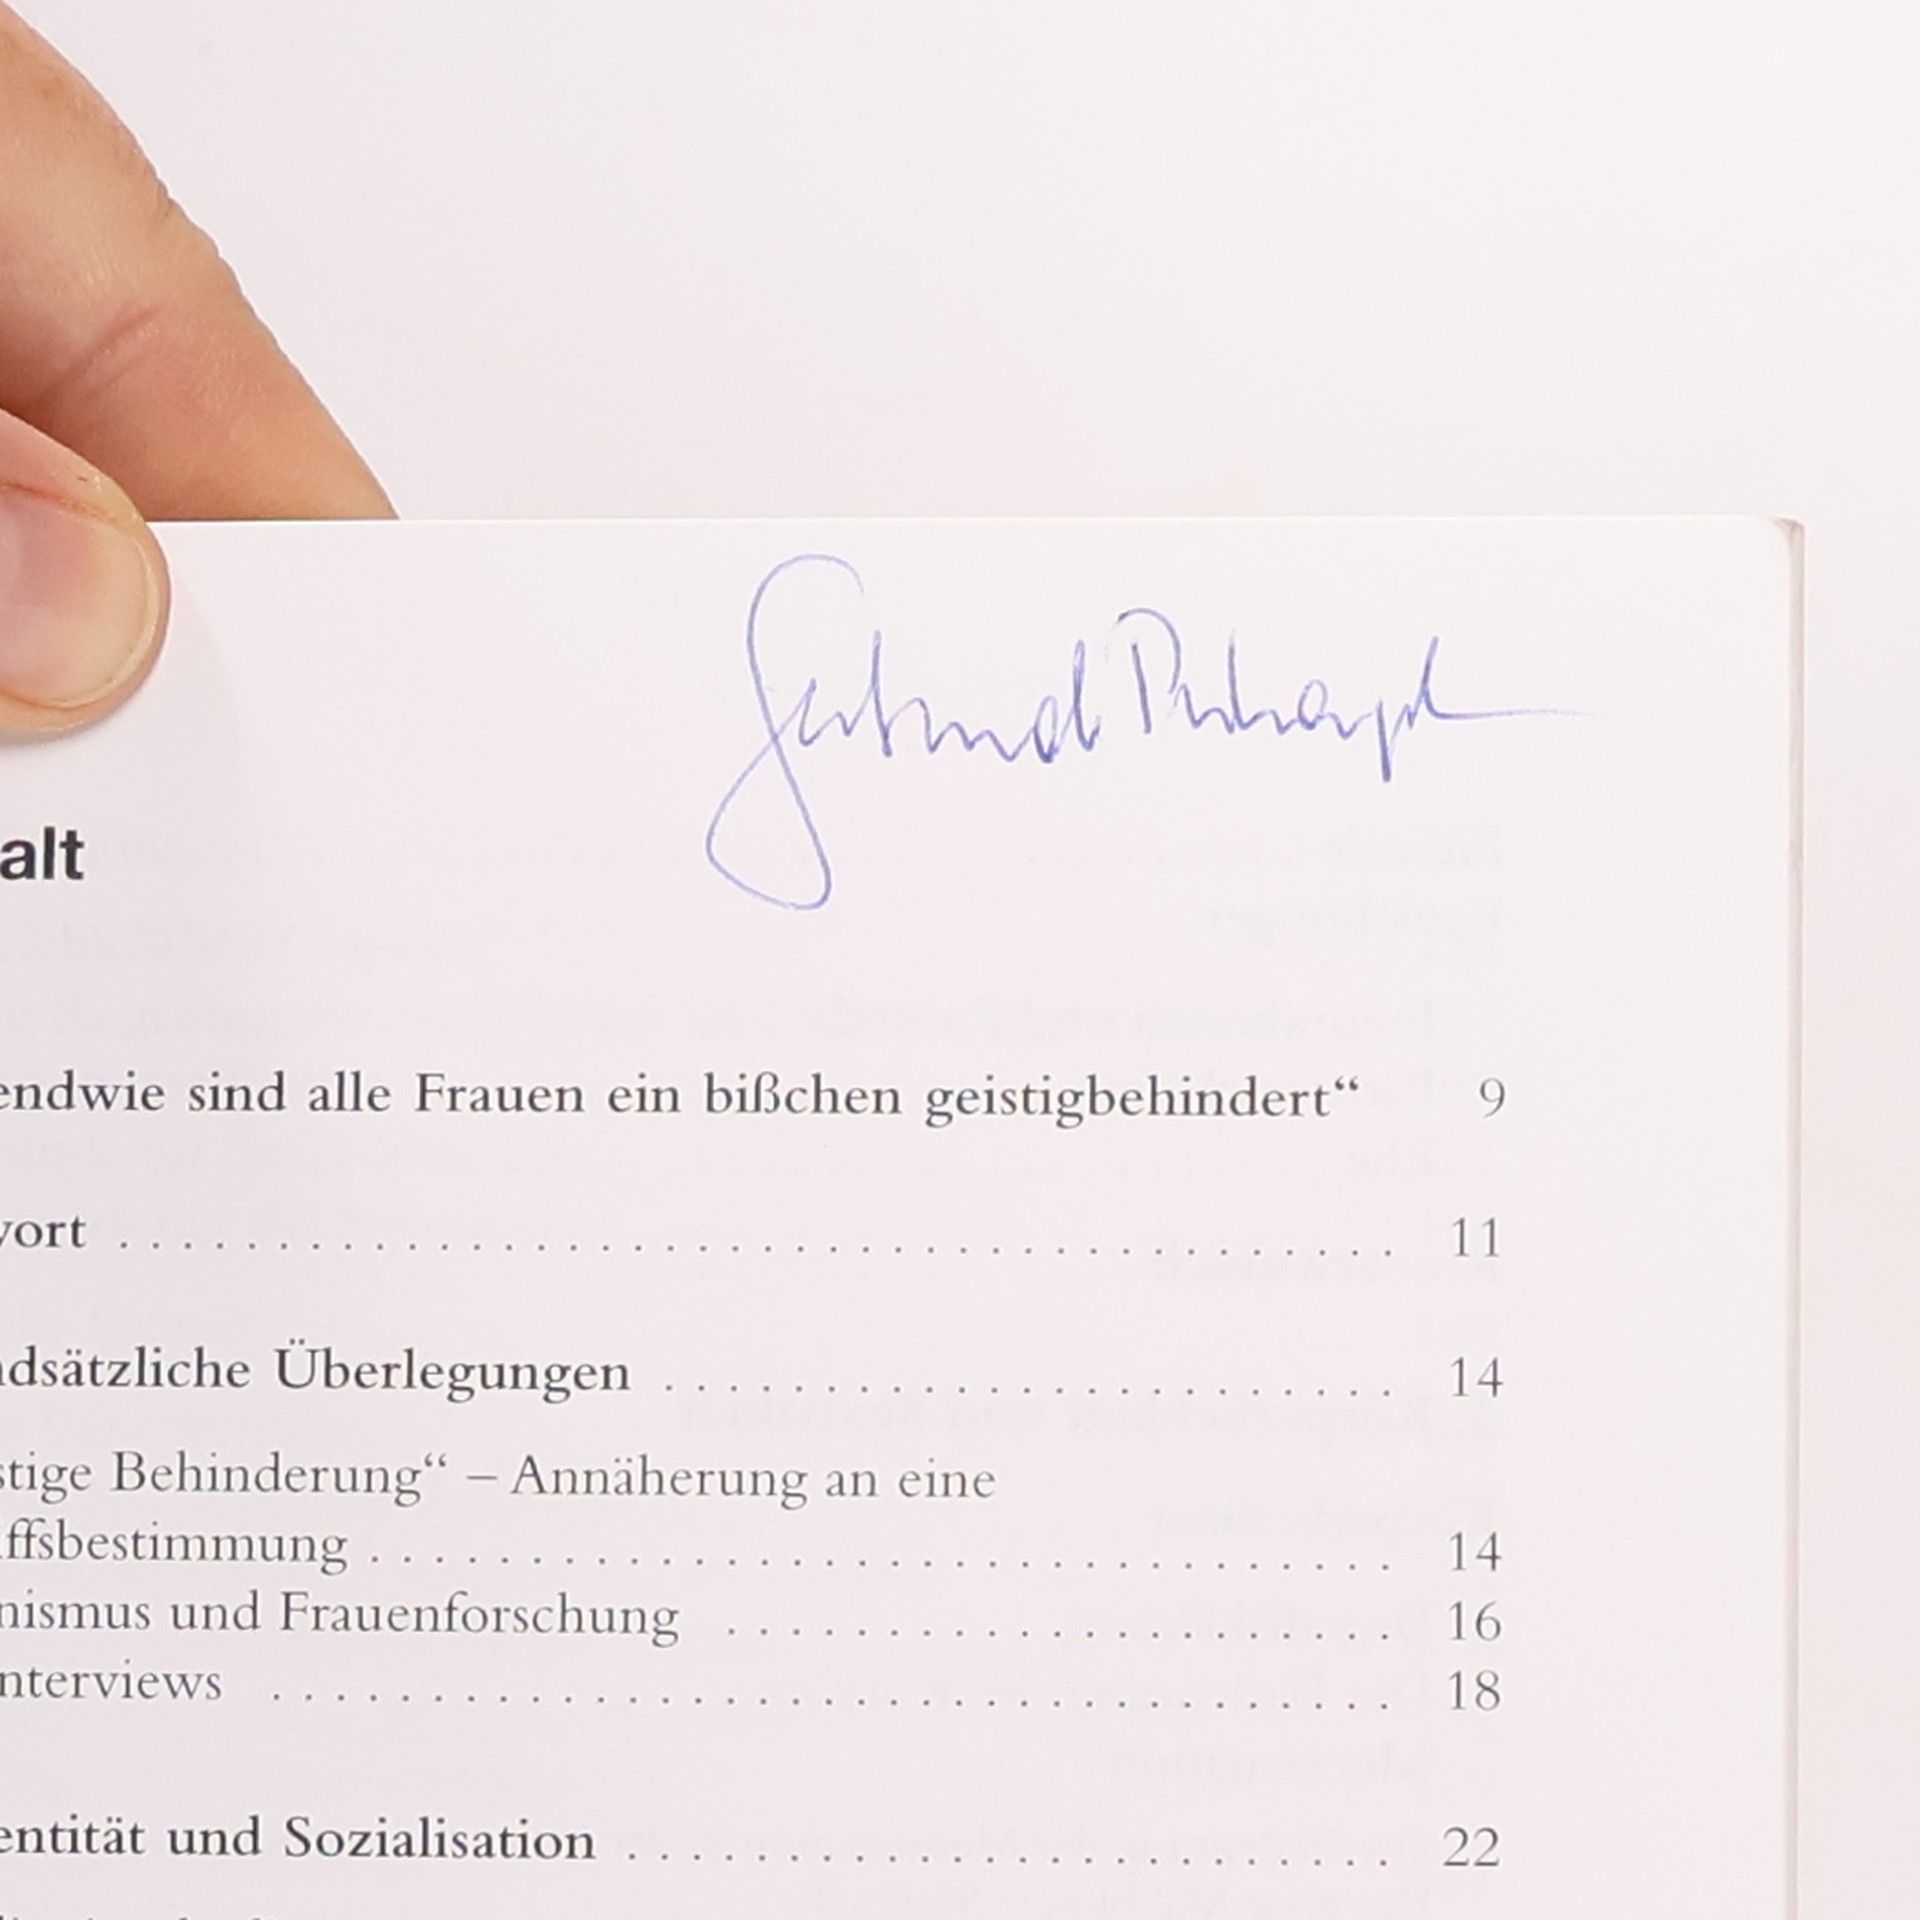 Gertrud
alt
endwie sind alle Frauen ein bißchen geistigbehindert“ 9
wort . . . . . . . . . . . . . . . . . . . . . . . . . . . . . . . . . . . . . . . . 11
ndsätzliche Überlegungen . . . . . . . . . . . . . . . . . . . . . . . 14
stige Behinderung“ – Annäherung an eine
ffsbestimmung . . . . . . . . . . . . . . . . . . . . . . . . . . . . . . . . 14
nismus und Frauenforschung . . . . . . . . . . . . . . . . . . . . . 16
nterviews . . . . . . . . . . . . . . . . . . . . . . . . . . . . . . . . . . . 18
entität und Sozialisation . . . . . . . . . . . . . . . . . . . . . . . . 22